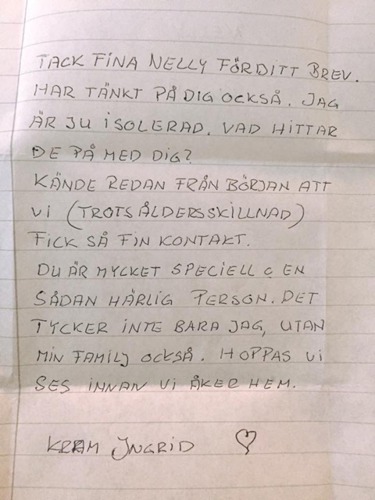 TACK FINA NELLY FÖRDITT BREV.
HAR TÄNKT PÅ DIG OCKSÅ. JAG
ÄR JU ISOLERAD. VAD HITTAR
DE PÅ MED DIG?
KÄNDE REDAN FRÅN BÖRJAN ATT
VI (TROTS ÅLDERSSKILLNAD)
FICK SÅ FIN KONTAKT.
DU ÄR MYCKET SPECIELL O EN
SÅDAN HÄRLIG PERSON. DET
TYCKER INTE BARA JAG, UTAN
MIN FAMILJ OCKSÅ. HOPPAS VI
SES INNAN VI ÅKER HEM.
KRAM INGRID ♡